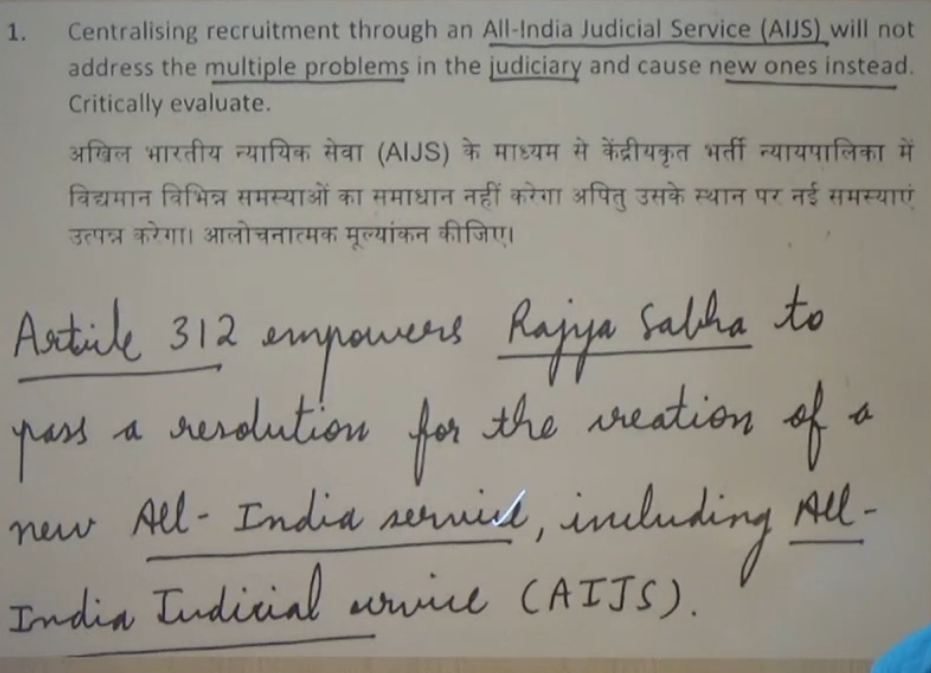 1. Centralising recruitment through an All-India Judicial Service (AIJS) will not
address the multiple problems in the judiciary and cause new ones instead.
Critically evaluate.
अखिल भारतीय न्यायिक सेवा (AIJS) के माध्यम से केंद्रीयकृत भर्ती न्यायपालिका में
विद्यमान विभिन्न समस्याओं का समाधान नहीं करेगा अपितु उसके स्थान पर नई समस्याएं
उत्पन्न करेगा। आलोचनात्मक मूल्यांकन कीजिए।
Article 312 empowers Rajya Sabha to
pass a resolution for the creation of a
new All-India service, including All-
India Judicial service (AIJS).